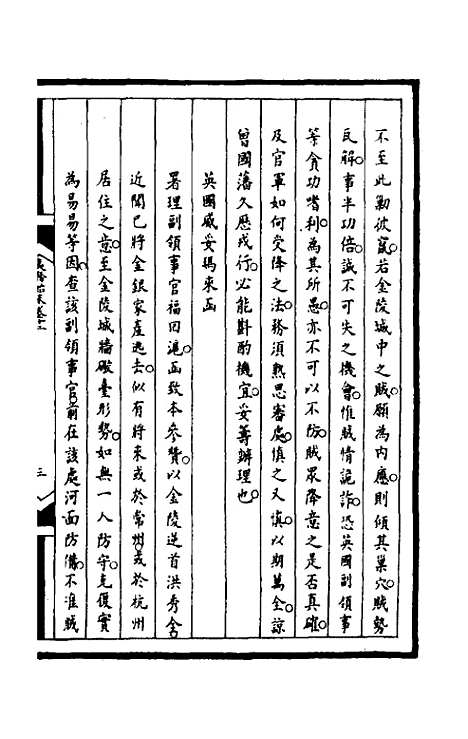 不至此勦彼竄。若金陵城中之賊。願為內應。則傾其巢穴。賊勢
瓦解。事半功倍。誠不可失之機會。惟賊情詭詐。恐英國副領事
等貪功嗜利。為其所愚。亦不可以不防。賊眾降意之是否真確。
及官軍如何受降之法。務須熟思審處。慎之又慎。以期萬全。諒
曾國藩久歷戎行。必能斟酌機宜。妥籌辦理也。
英國威妥瑪來函
署理副領事官福因滬。函致本參贊。以金陵逆首洪秀全
近聞已將金銀家產逃去。似有將來或於常州。或於杭州
居住之意。至金陵城牆礮臺形勢。如無一人防守。克復實
為易易等因。查該副領事官前在該處河面防備。不准賊
三